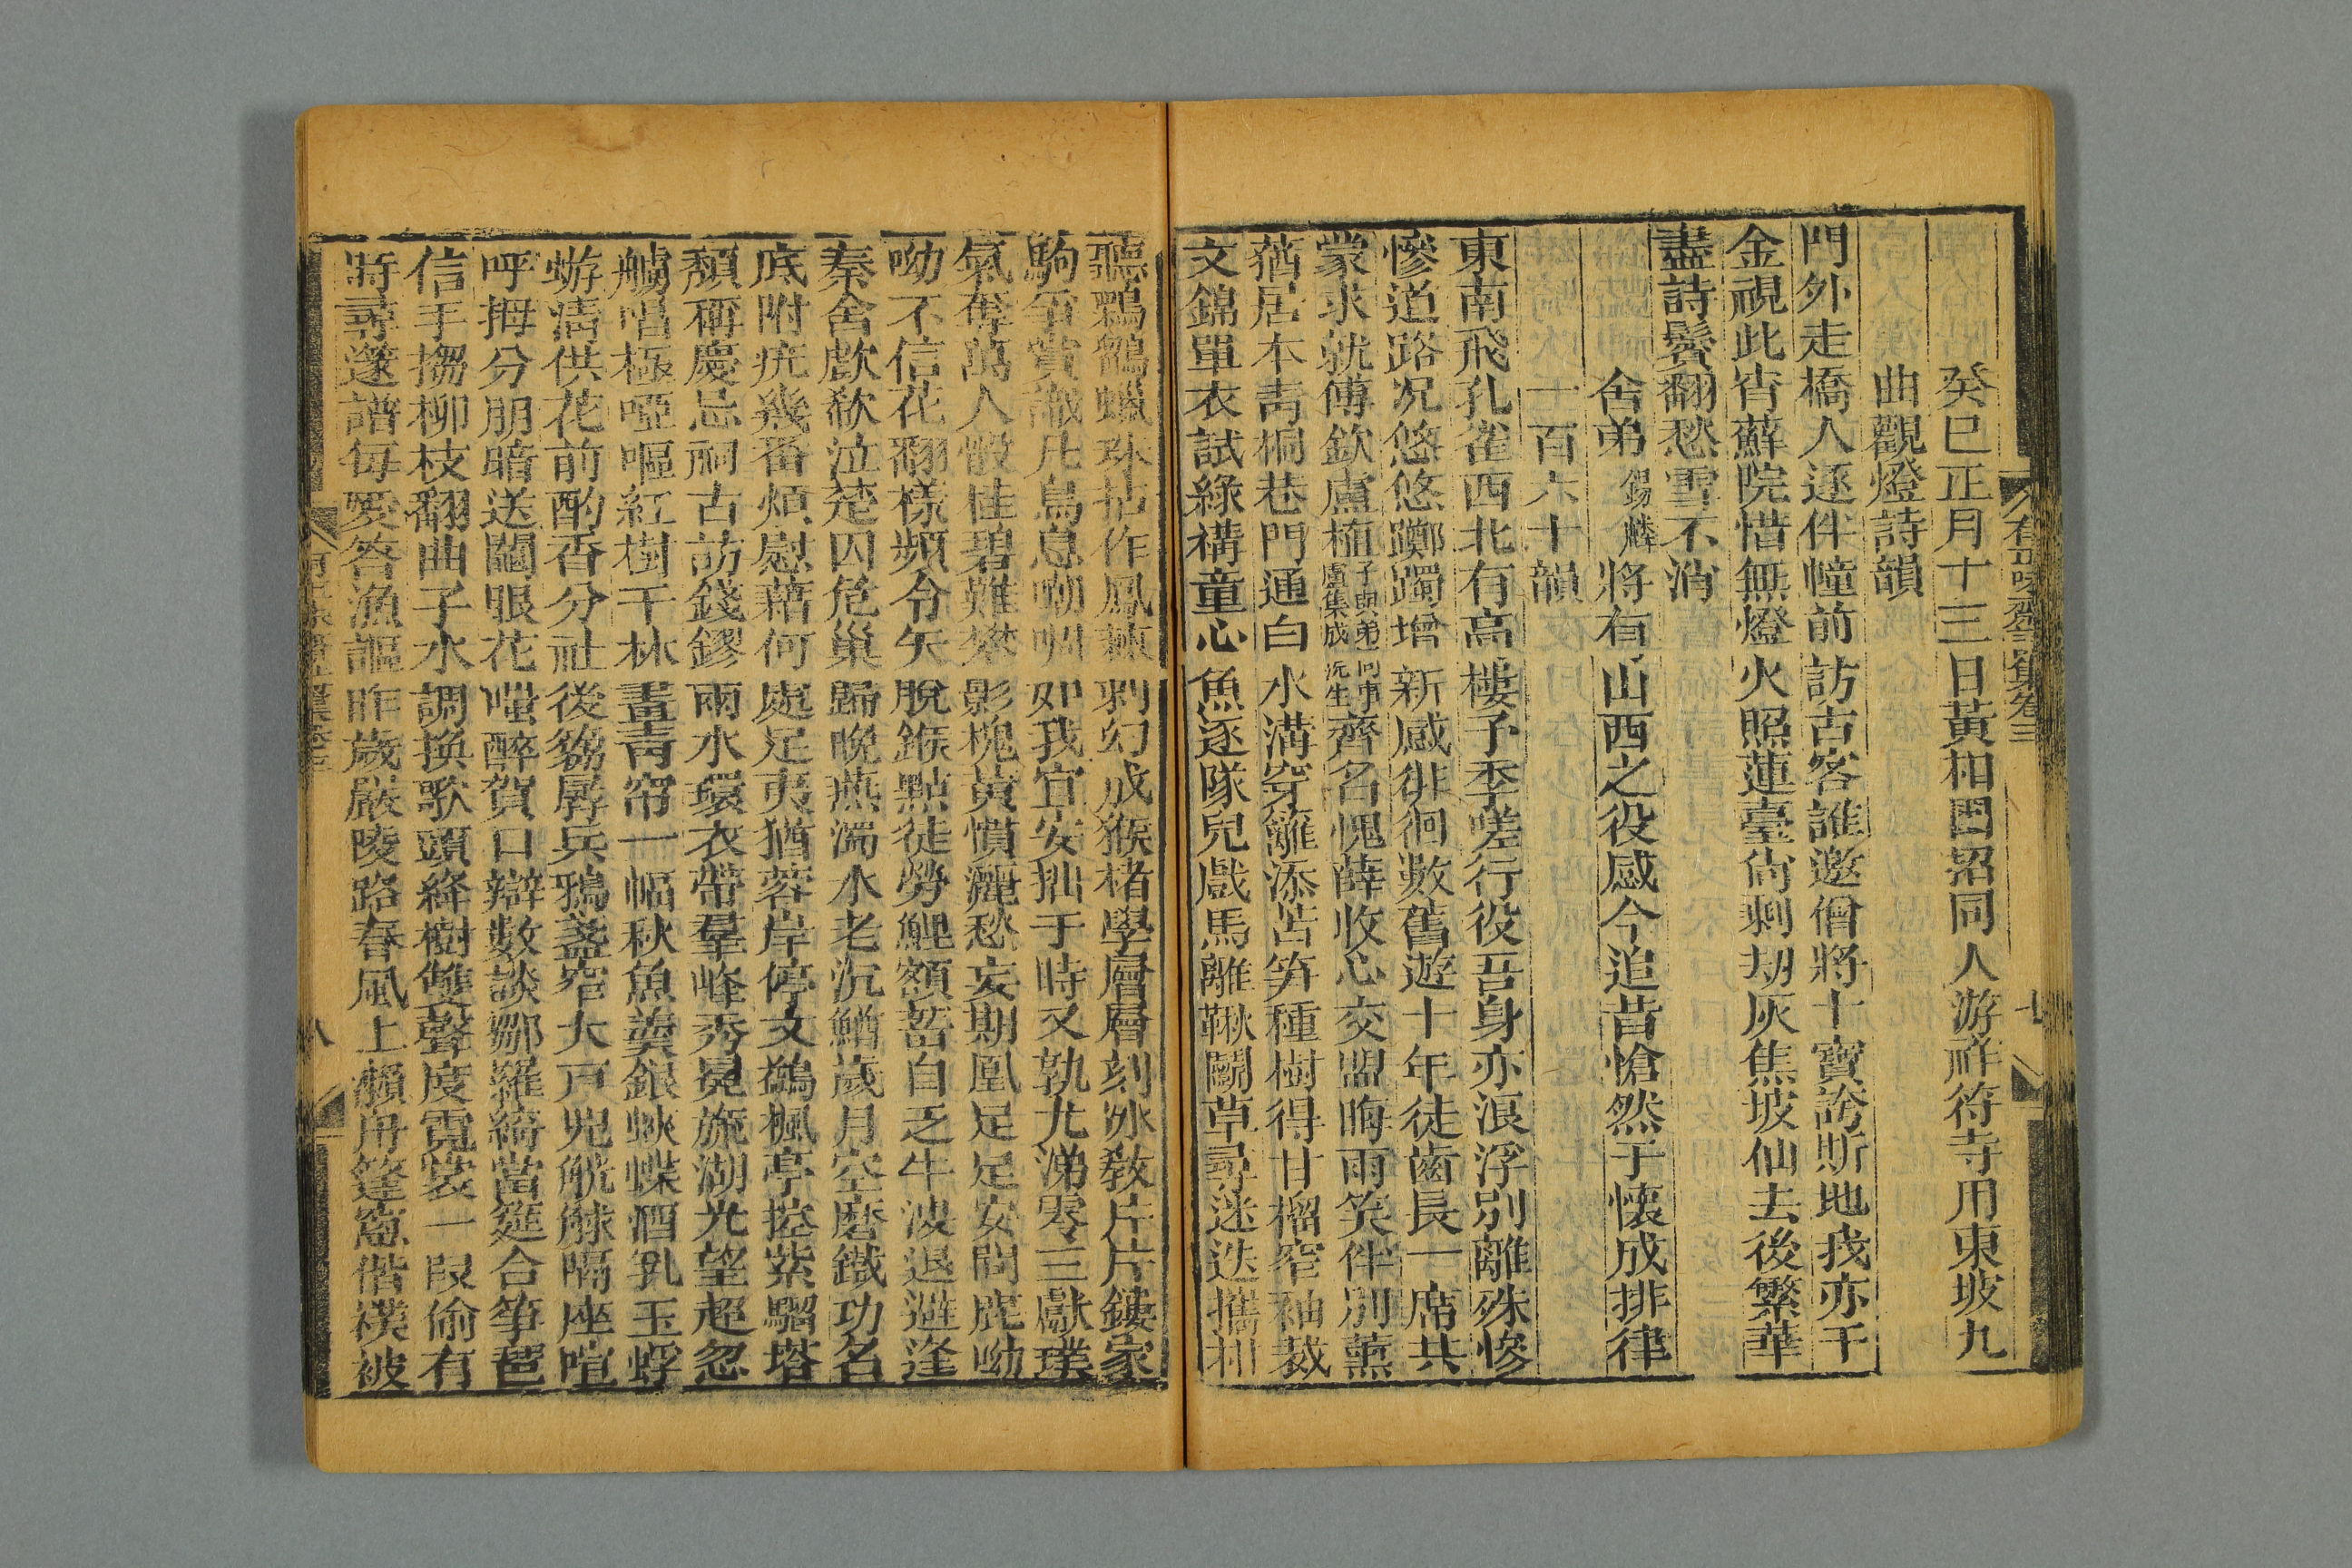 癸巳正月十三日黃相圃招同人游祥符寺用東坡九
曲觀燈詩韻
門外走橋人逐伴幢前訪古客誰邀僧將十寶誇斯地我亦千
金視此宵蘚院惜無燈火照蓮臺尙剩劫灰焦坡仙去後繁華
盡詩鬢翻愁雪不消
舍弟錫麟將有山西之役感今追昔愴然于懷成排律
一百六十韻
東南飛孔雀西北有高樓予季嗟行役吾身亦浪浮別離殊慘
慘道路况悠悠躑躅增新感徘徊數舊遊十年徒齒長一席共
蒙求就傅欽盧植子與弟同事盧集成沅生齊名愧薛收心交盟晦雨笑伴別薰
蕕居本靑桐巷門通白水溝穿籬添苦笋種樹得甘榴窄袖裁
文錦單衣試綠褠童心魚逐隊兒戲馬離鞦鬭草尋迷迭攜柑
聽鶴蠟珠拈作鳳蔴剁幻成猴楮學層層刻冰敎片片鏤家
駒爭賞識凡鳥息嘲啁如我宜安拙于時又孰尤涕零三獻璞
氣奪萬人骰佳碧難攀影槐黃慣灑愁妄期凰足足安問鹿呦
呦不信花翻樣頻令矢脫鍭點徒勞鯉額暫自乏牛波退避逢
秦舍歔欷泣楚囚危巢歸晚燕濁水老沉鰌歲月空磨鐵功名
底附疣幾番煩慰藉何處足夷猶蓉岸停文鷁楓亭控紫騮塔
頹稱慶忌祠古訪錢鏐雨水環衣帶羣峰秀冕旒湖光望超忽
觴唱極啞嘔紅樹千林畫靑帘一幅秋魚羮銀蛺蝶酒乳玉蜉
蝣清供花前酌香分社後芻孱兵鴉盞窄大戶兕觥觩隔座喧
呼拇分朋暗送鬮眼花嗤醉賀口辯數談鄒羅綺當筵合箏琶
信手搊柳枝翻曲子水調換歌頭絳樹雙聲度霓裳一叚偷有
時尋遂譜每愛答漁謳昨歲嚴陵路春風上瀨舟篷窻偕襆被
有正味齋集卷三
七
八